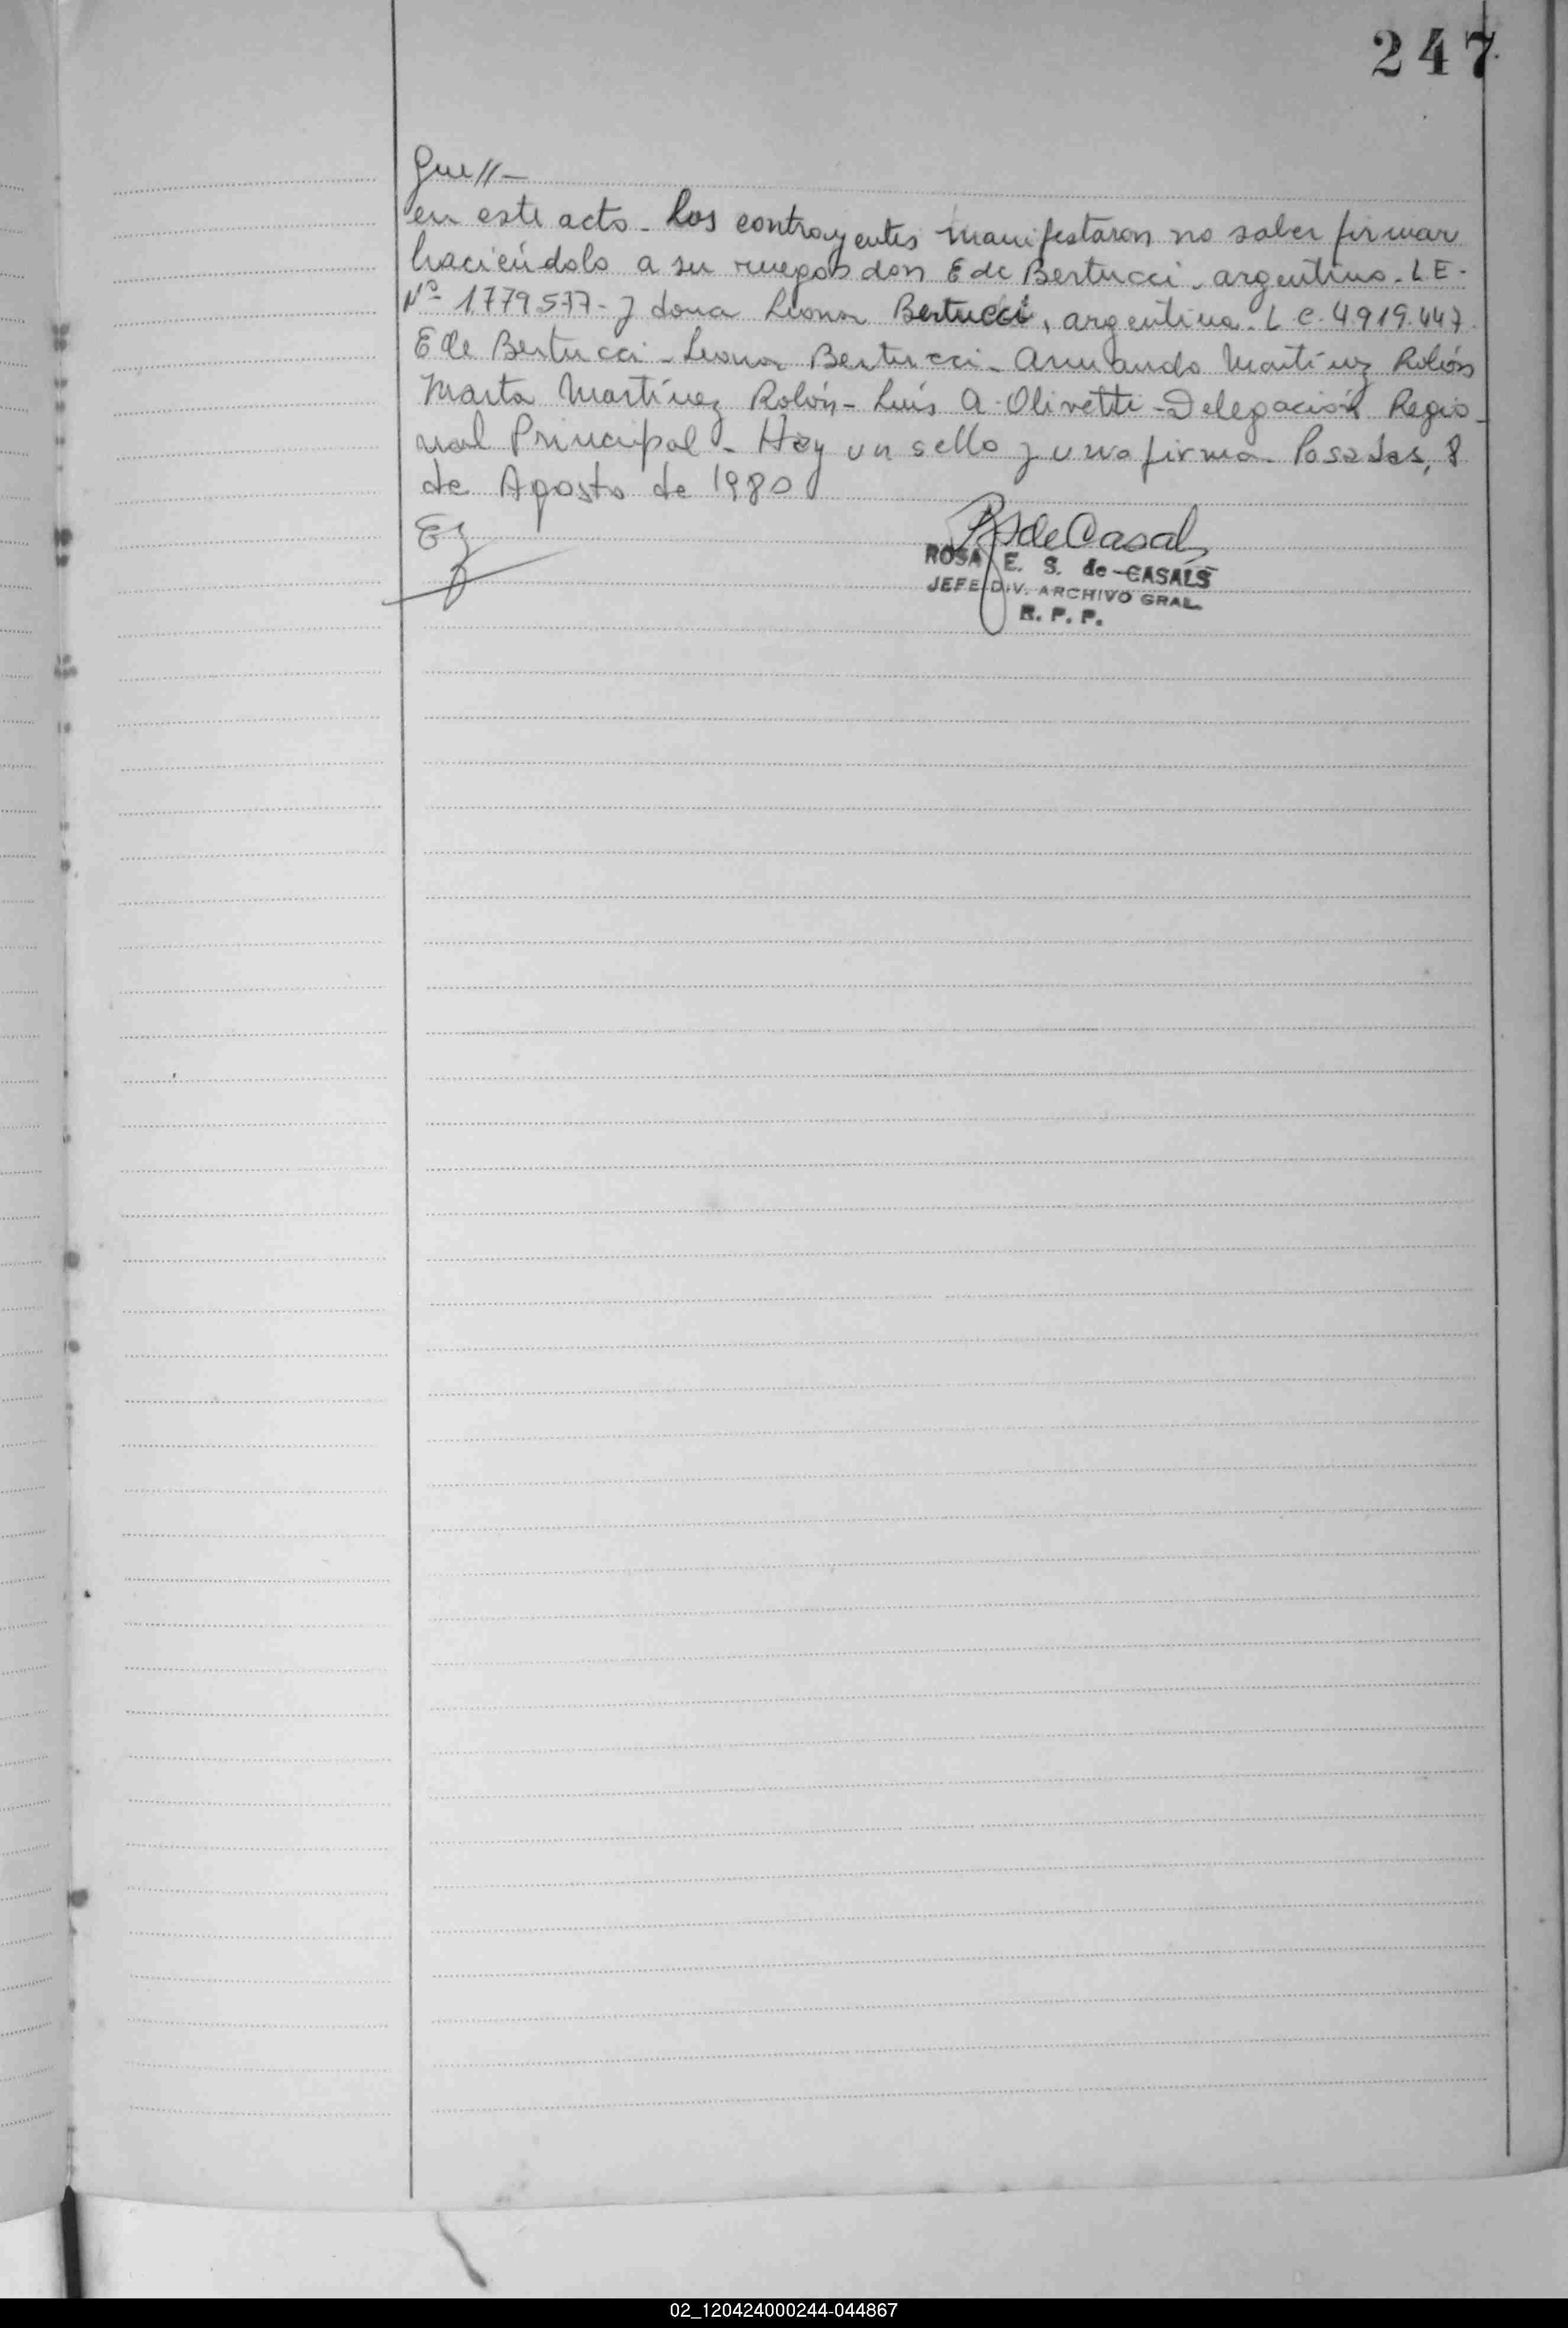 247
Que//-
en este acto - Los contrayentes manifestaron no saber firmar
haciéndolo a su ruegos don Ede Bertucci - argentino - L.E -
Nº 1.779.537 - y dona Leonor Bertucci, argentina. L C. 4.919.447.
Ede Bertucci - Leonor Bertucci - Armando Martínez Rolón
Marta Martínez Rolón - Luís A. Olivetti - Delegación Regio-
nal Principal - Hay un sello y una firma - Posadas, 8
de Agosto de 1980
Ez
RSdeCasals
ROSA E. S. de CASALS
JEFE DIV. ARCHIVO GRAL.
R. P. P.
02_120424000244-044867